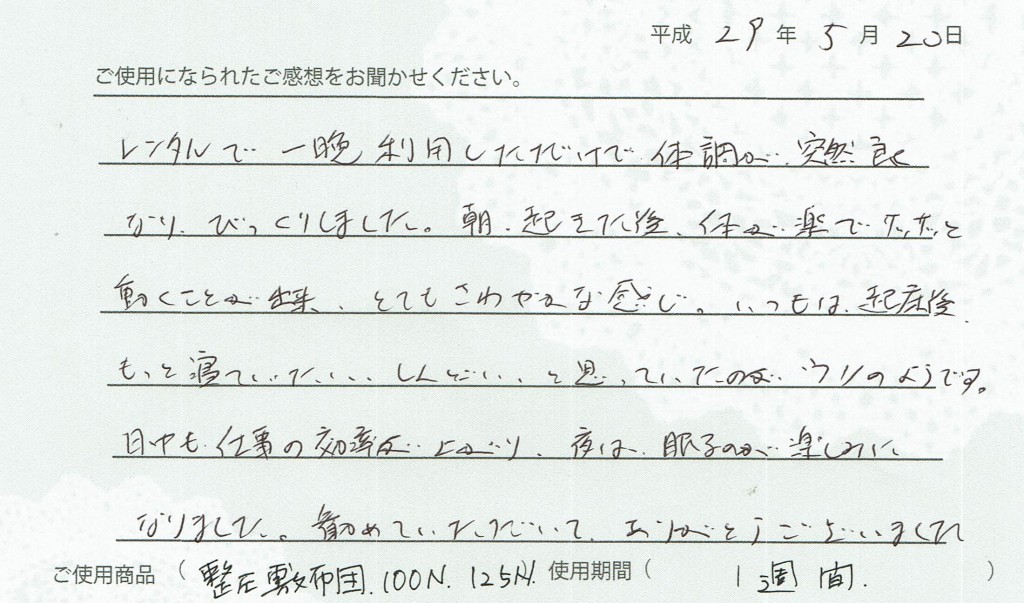 平成 29 年 5 月 20 日
ご使用になられたご感想をお聞かせください。
レンタルで一晩利用しただけで体調が、突然良く
なり、びっくりしました。朝、起きた後、体が楽でサッサッと
動くことが出来、とてもさわやかな感じ。いつもは、起床後、
もっと寝ていたい、、しんどい、、と思っていたのがウソのようです。
日中も仕事の効率が上がり、夜は、眠るのが楽しみに
なりました。勧めていただいて、ありがとうございました
ご使用商品（整圧敷布団、100N、125N）使用期間（1週間、）